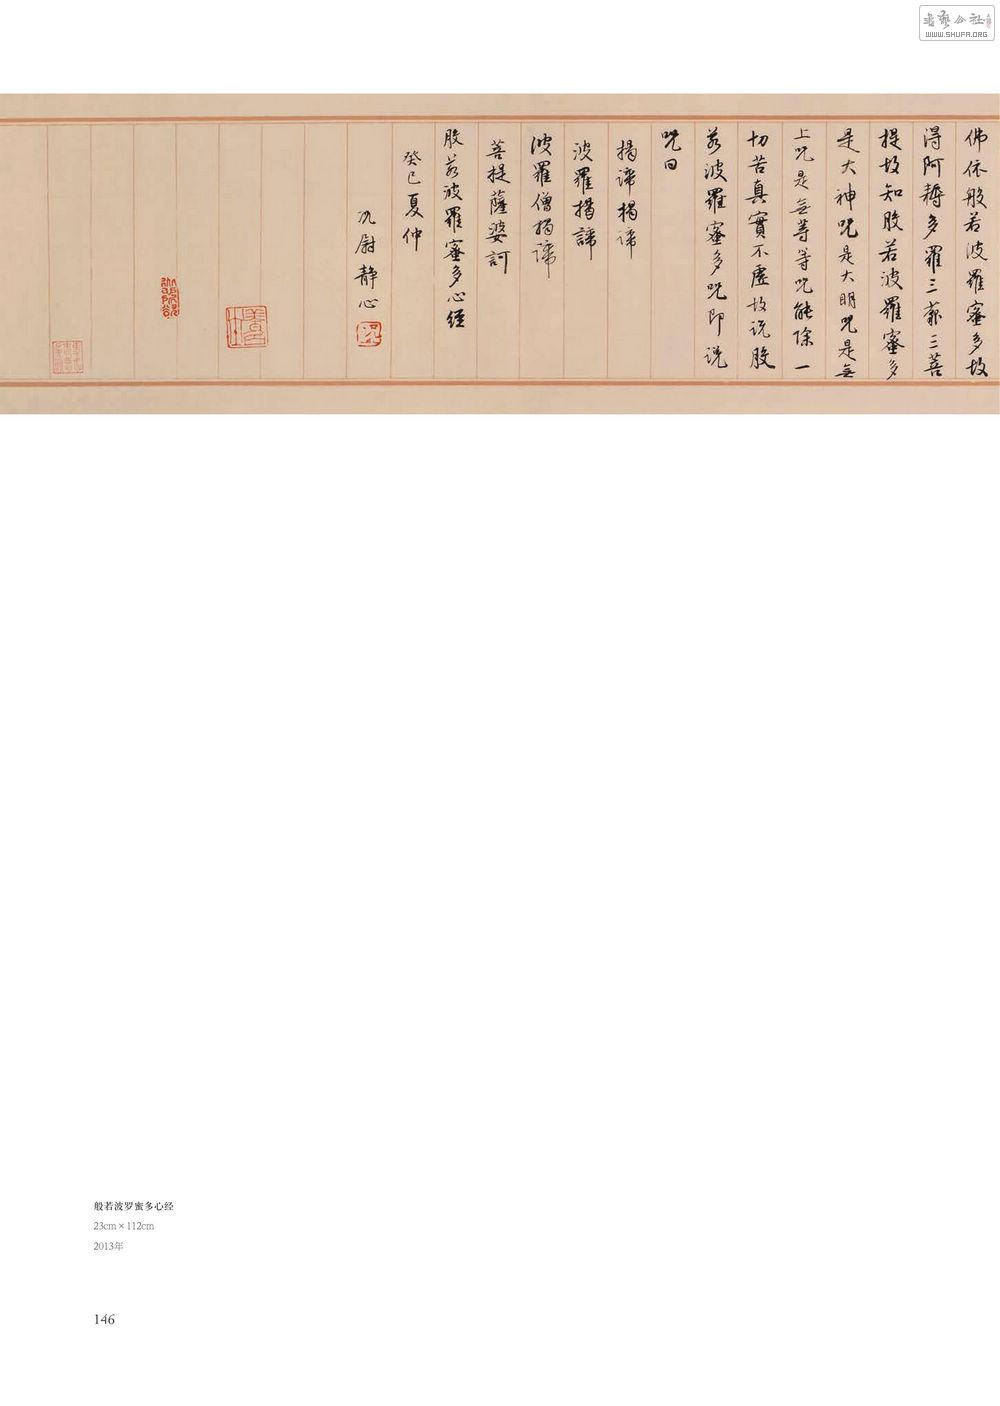 佛依般若波羅蜜多故
得阿耨多羅三藐三菩
提故知般若波羅蜜多
是大神咒是大明咒是無
上咒是無等等咒能除一
切苦真實不虛故説般
若波羅蜜多咒即説
咒曰
揭諦揭諦
波羅揭諦
波羅僧揭諦
菩提薩婆訶
般若波羅蜜多心經
癸巳夏仲
尉静心
般若波罗蜜多心经
23cm × 112cm
2013年
146
书艺公社
WWW.SHUFA.ORG